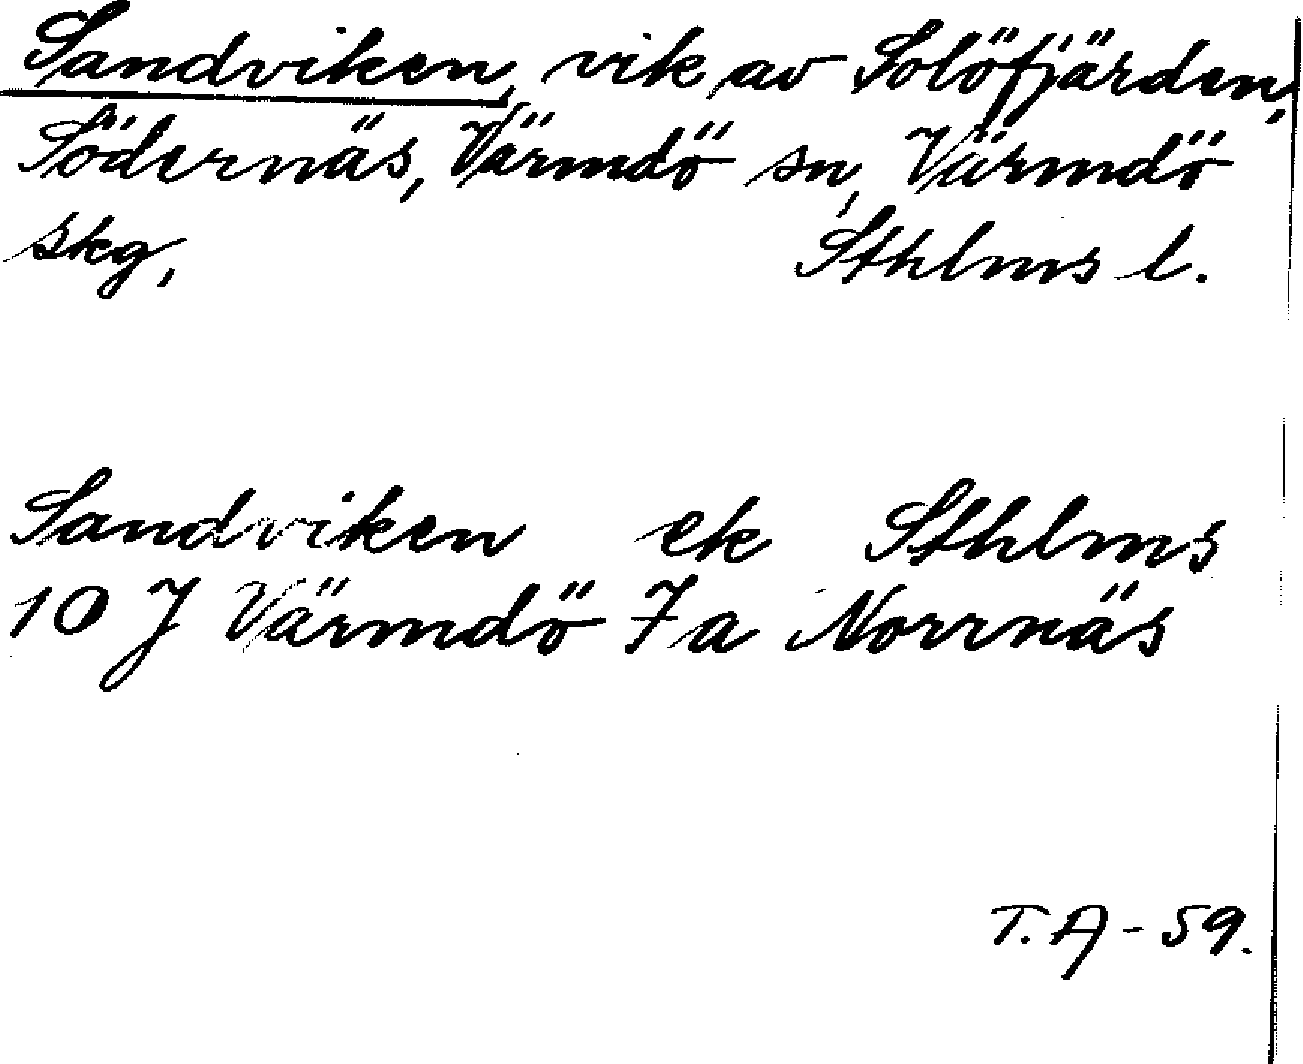 Sandviken, vik av Solöfjärden,
Södernäs, Värmdö sn, Värmdö
skg,
Sthlms l.
Sandviken ek Sthlms
10 J Värmdö 7a Norrnäs
T.A-59.